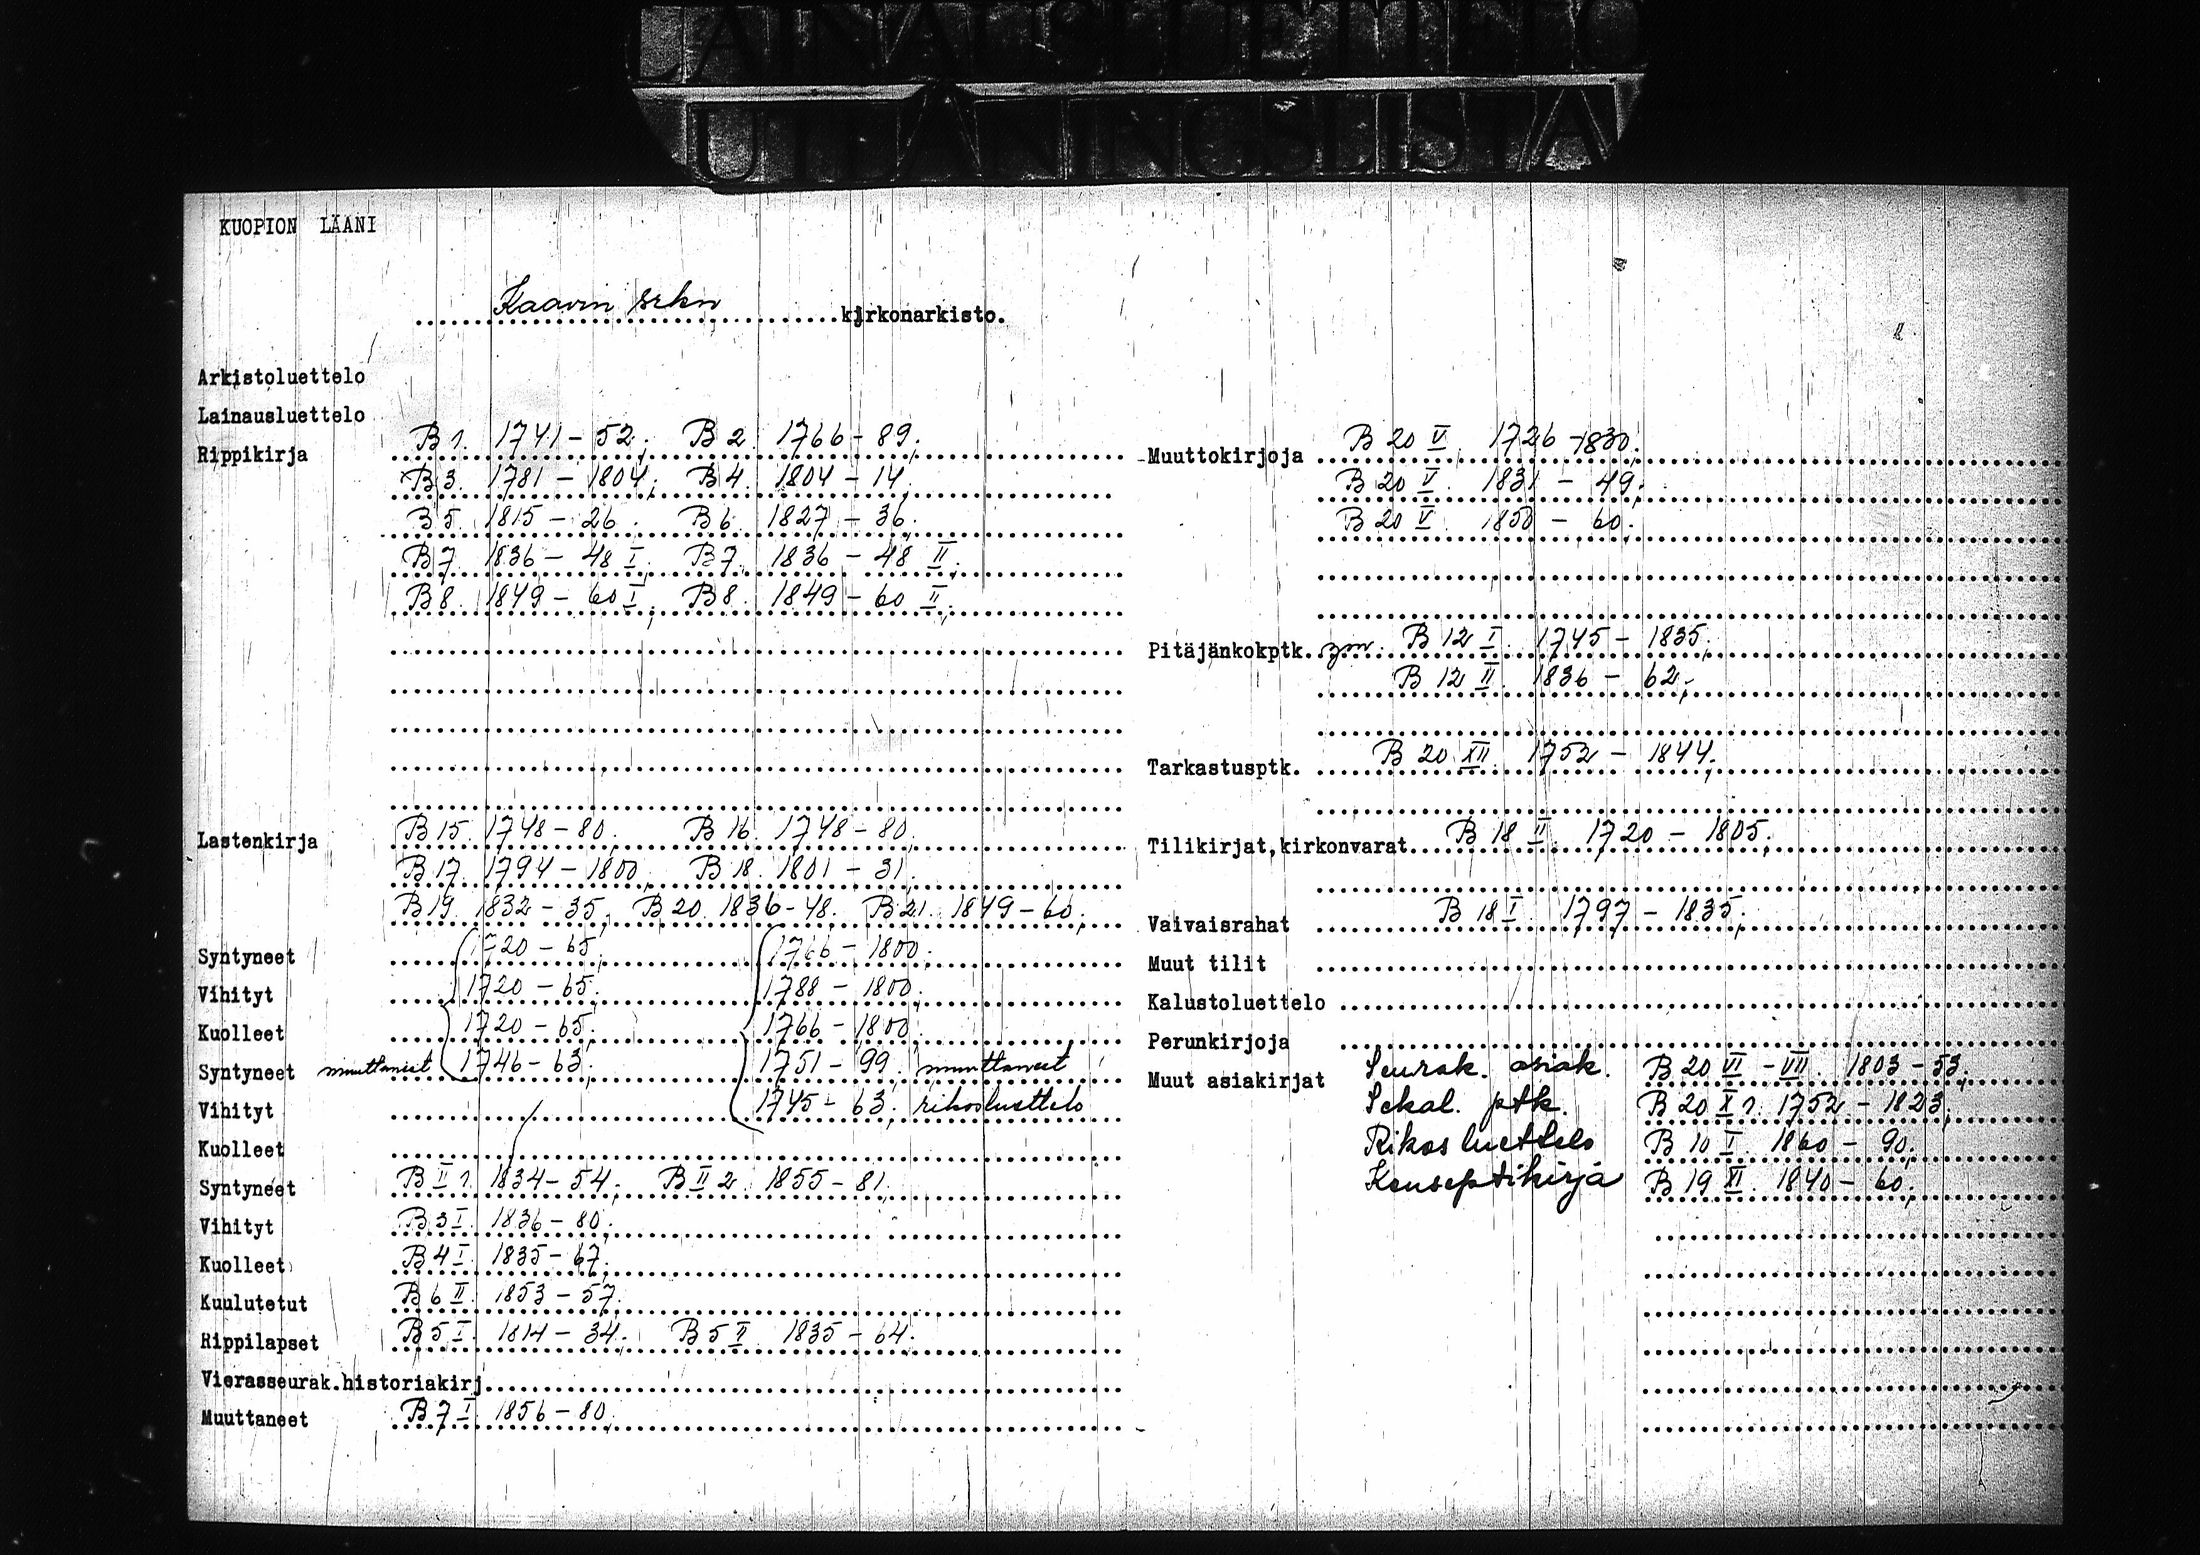 LAINAUSLUETTELO
UTLÅNINGSLISTA
KUOPION LÄÄNI
Kaavin srkn kirkonarkisto.
Arkistoluettelo
Lainausluettelo
Rippikirja B 1. 1741 - 52; B 2. 1766 - 89;
B 3. 1781 - 1804; B 4. 1804 - 14;
B 5. 1815 - 26. B 6. 1827 - 36.
B 7. 1836 - 48 I; B 7. 1836 - 48 II;
B 8. 1849 - 60 I; B 8. 1849 - 60 II;
Lastenkirja B 15. 1748 - 80. B 16. 1748 - 80.
B 17. 1794 - 1800. B 18. 1801 - 31.
B 19. 1832 - 35, B 20. 1836 - 48. B 21. 1849 - 60;
Syntyneet 1720 - 65; 1766 - 1800;
Vihityt 1720 - 65; 1788 - 1800;
Kuolleet 1720 - 65; 1766 - 1800.
Syntyneet muuttaneet 1746 - 63; 1751 - 99. muuttaneet
Vihityt 1745 - 63; rikosluettelo
Kuolleet
Syntyneet B II 1. 1834 - 54; B II 2. 1855 - 81.
Vihityt B 3 I. 1836 - 80;
Kuolleet B 4 I. 1835 - 67.
Kuulutetut B 6 II. 1853 - 57.
Rippilapset B 5 I. 1814 - 34. B 5 II. 1835 - 64.
Vierasseurak.historiakirj
Muuttaneet B 7 I. 1856 - 80.
Muuttokirjoja B 20 V. 1726 - 1830;
B 20 V. 1831 - 49;
B 20 V. 1850 - 60;
Pitäjänkokptk. ym. B 12 I. 1745 - 1835;
B 12 II. 1836 - 62;
Tarkastusptk. B 20 XII. 1752 - 1844;
Tilikirjat,kirkonvarat B 18 II. 1720 - 1805;
Vaivaisrahat B 18 I. 1797 - 1835;
Muut tilit
Kalustoluettelo
Perunkirjoja
Muut asiakirjat Seurak. asiak. B 20 VI - VII. 1803 - 53;
Sekal. ptk. B 20 X 1. 1752 - 1823;
Rikosluettelo B 10 I. 1860 - 90;
Konseptikirja B 19 XI. 1840 - 60;